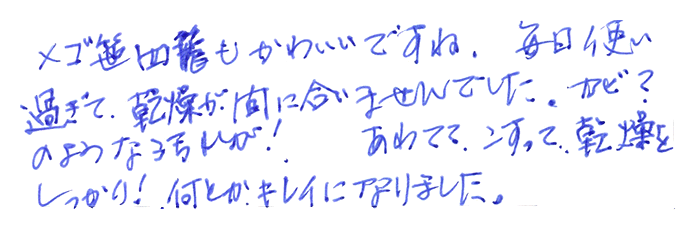 メゴ笹四籠もかわいいですね。毎日使い
過ぎて、乾燥が間に合いませんでした。カビ?
のような汚れが! あわてて、こすって、乾燥を
しっかり! 何とかキレイになりました。